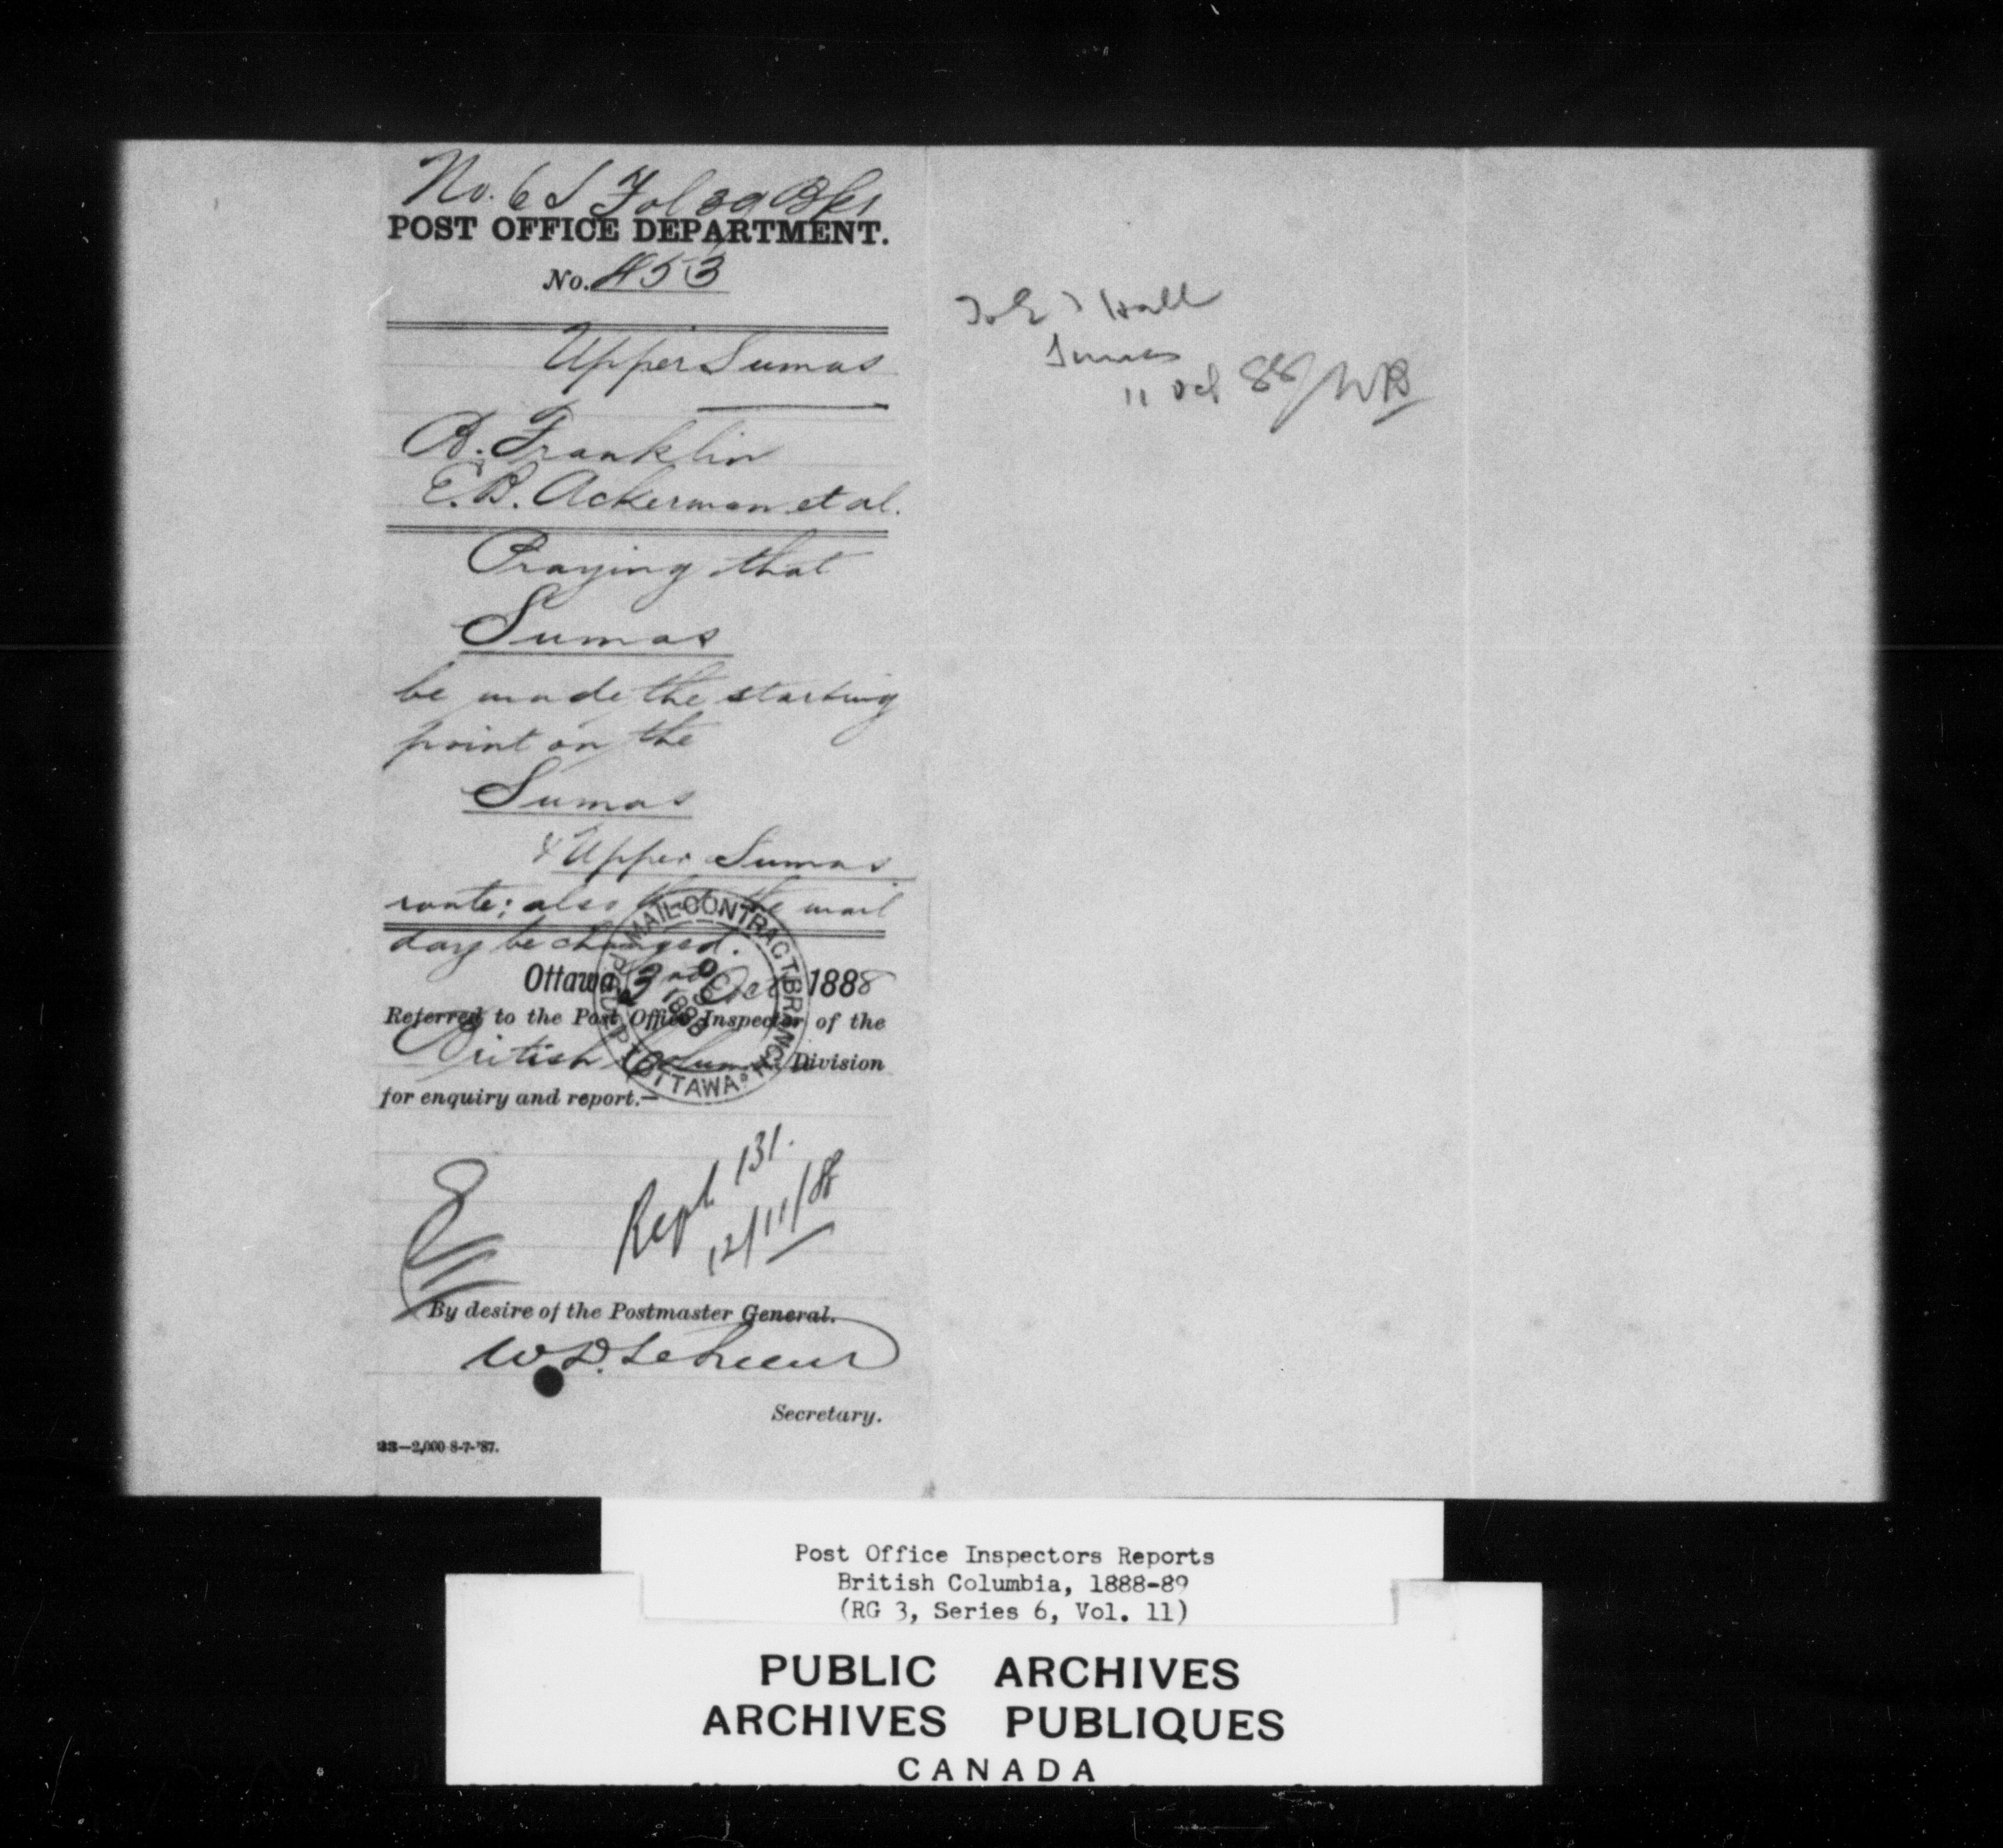 No. 6 S Fol 39 Bk1
POST OFFICE DEPARTMENT.
No. 453
Upper Sumas
B. Franklin
E.B. Ackerman et al.
Praying that
Sumas
be made the starting
point on the
Sumas
& Upper Sumas
route; also that the mail
day be changed.
Ottawa, 3rd Oct 1888
Referred to the Post Office Inspector of the
British Columbia Division
for enquiry and report.—
MAIL CONTRACT BRANCH
P.O. DEPT OTTAWA
OC
1888
Rept 131.
12/11/88
By desire of the Postmaster General.
W.D. LeSueur
Secretary.
33—2,000-8-7-'87.
Hall
Sumas
11 Oct 88/WB
Post Office Inspectors Reports
British Columbia, 1888-89
(RG 3, Series 6, Vol. 11)
PUBLIC ARCHIVES
ARCHIVES PUBLIQUES
CANADA